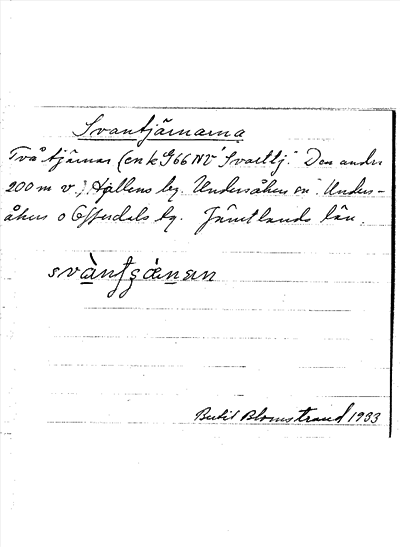 Svantjärnarna
Två tjärnar (en k G66 NV "Svarttj." Den andra
200 m v.) Hallens by. Undersåkers sn. Unders-
åkers o Offerdals tg. Jämtlands län.
Bertil Blomstrand 1933